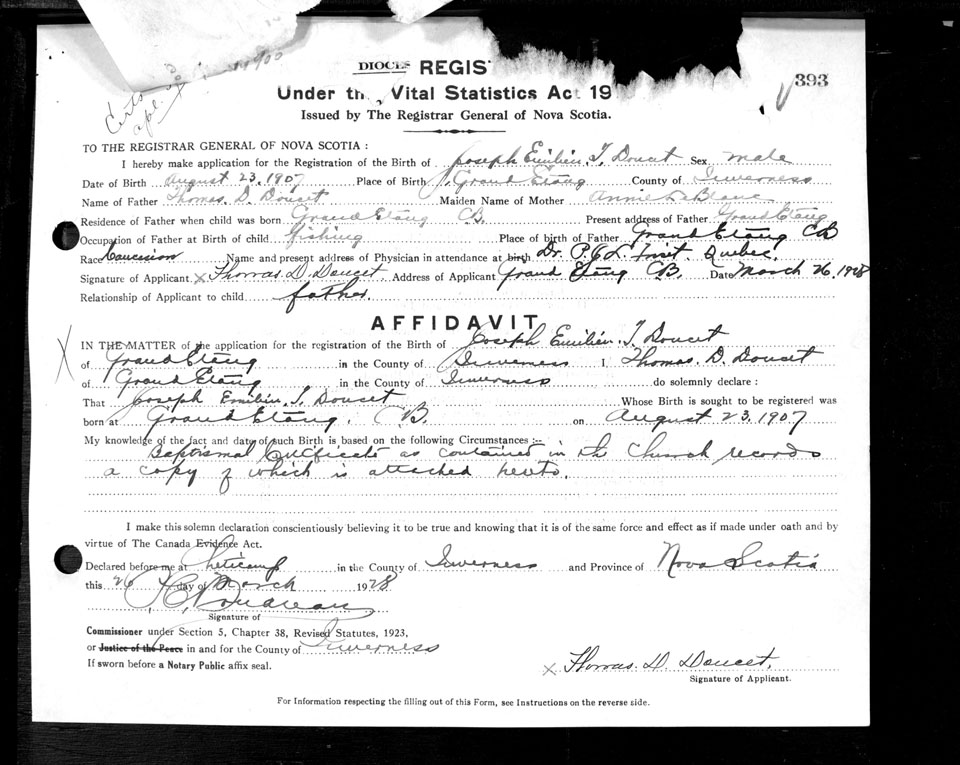 Certs
DIOCES REGIS
393
Under the Vital Statistics Act 19
Issued by The Registrar General of Nova Scotia.
TO THE REGISTRAR GENERAL OF NOVA SCOTIA :
I hereby make application for the Registration of the Birth of Joseph Emilien T. Doucet Sex male
Date of Birth August 23, 1907 Place of Birth Grand Etang County of Inverness
Name of Father Thomas. D. Doucet Maiden Name of Mother Annie LeBlanc
Residence of Father when child was born Grand Etang CB. Present address of Father Grand Etang
Occupation of Father at Birth of child fishing Place of birth of Father Grand Etang CB
Race Name and present address of Physician in attendance at birth Dr. P. L. Quebec.
Signature of Applicant x Thomas D. Doucet Address of Applicant Grand Etang CB. Date March 26, 1928
Relationship of Applicant to child father.
AFFIDAVIT
IN THE MATTER of the application for the registration of the Birth of Joseph Emilien. T. Doucet
of Grand Etang in the County of Inverness I, Thomas. D. Doucet
of Grand Etang in the County of Inverness do solemnly declare :
That Joseph Emilien. T. Doucet Whose Birth is sought to be registered was
born at Grand Etang, CB. on August 23, 1907
My knowledge of the fact and date of such Birth is based on the following Circumstances :--
Baptismal Certificate as contained in the Church records
a copy of which is attached hereto.
I make this solemn declaration conscientiously believing it to be true and knowing that it is of the same force and effect as if made under oath and by
virtue of The Canada Evidence Act.
Declared before me at Cheticamp in the County of Inverness and Province of Nova Scotia
this 26 day of March 1928
Boudreau
Signature of
Commissioner under Section 5, Chapter 38, Revised Statutes, 1923,
or Justice of the Peace in and for the County of Inverness
If sworn before a Notary Public affix seal.
x Thomas. D. Doucet.
Signature of Applicant.
For Information respecting the filling out of this Form, see Instructions on the reverse side.